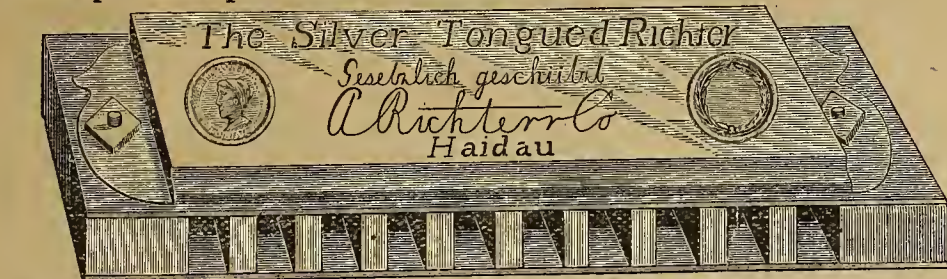 The Silver Tongued Richter
Gesetzlich geschützt
A Richterr Co
Haidau